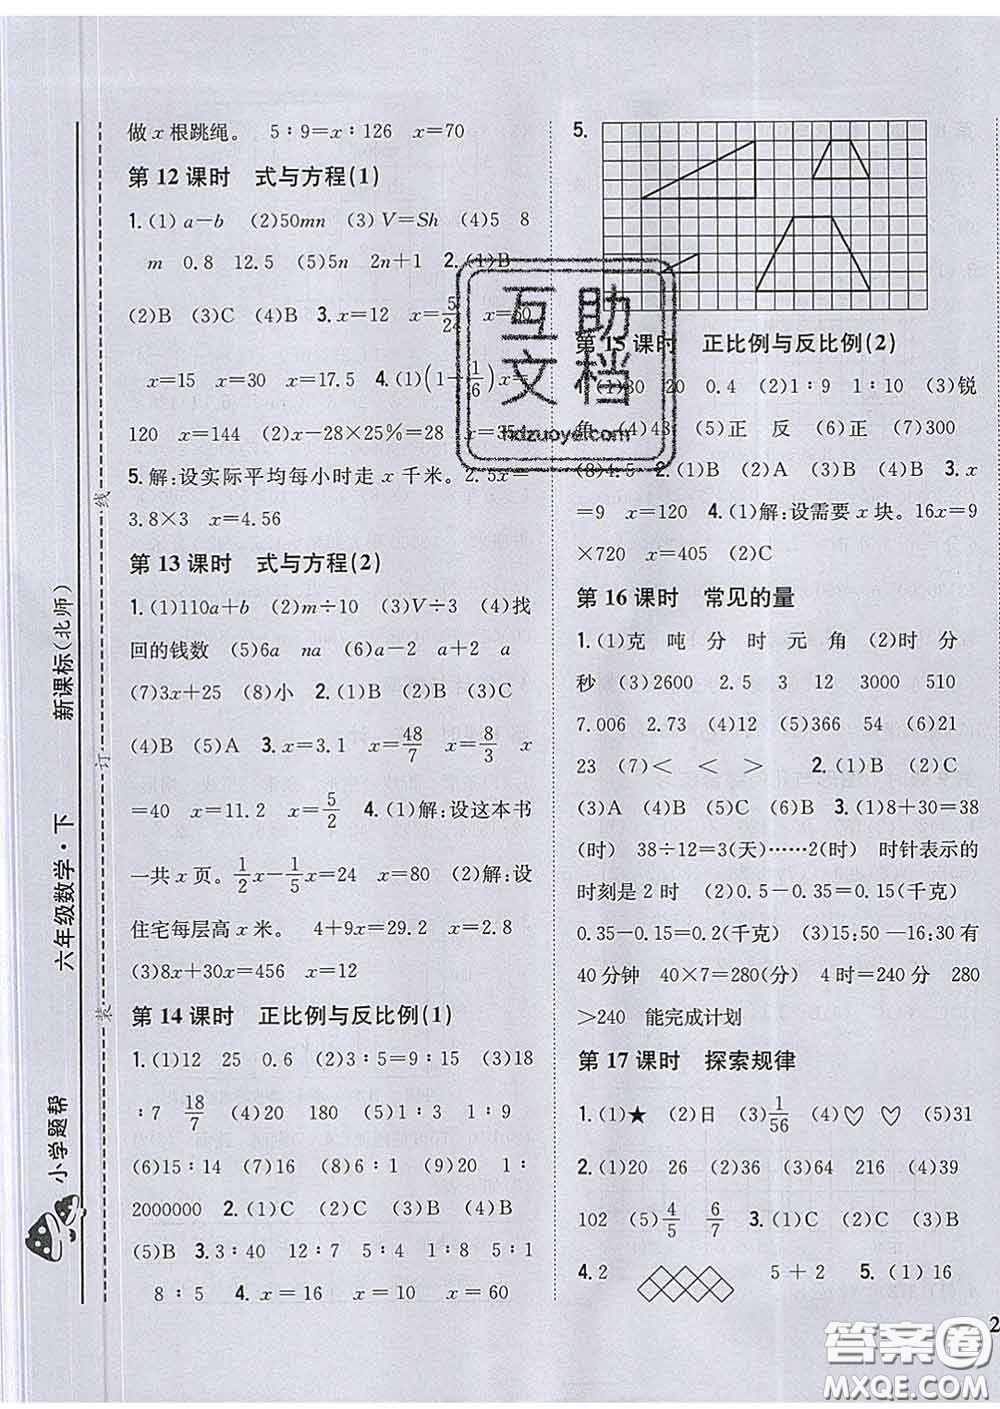 做 x 根跳绳。 5∶9=x∶126 x=70
第 12 课时 式与方程(1)
1.(1) a-b (2)50mn (3) V=Sh (4)5 8
m 0.8 12.5 (5)5n 2n+1 2.(1)B
(2)B (3)C (4)B 3.x=12 x=5/24 x=60
x=15 x=30 x=17.5 4.(1)(1-1/6)x=
120 x=144 (2)x-28×25%=28 x=35
5.解:设实际平均每小时走 x 千米。2.5x=
3.8×3 x=4.56
第 13 课时 式与方程(2)
1.(1)110a+b (2)m÷10 (3)V÷3 (4)找
回的钱数 (5)6a na (6)a-2 a+2 a
(7)3x+25 (8)小 2.(1)B (2)B (3)C
(4)B (5)A 3.x=3.1 x=48/7 x=8/3 x
=40 x=11.2 x=5/2 4.(1)解:设这本书
一共 x 页。1/2x-1/5x=24 x=80 (2)解:设
住宅每层高 x 米。 4+9x=29.2 x=2.8
(3)8x+30x=456 x=12
第 14 课时 正比例与反比例(1)
1.(1)12 25 0.6 (2)3∶5=9∶15 (3)18
∶7 18/7 (4)20 180 (5)1∶3 1∶9
(6)15∶14 (7)240 (8)6∶1 (9)20 1∶
2000000 2.(1)C (2)C (3)B (4)B
(5)B 3.3∶40 12∶7 5∶4 1∶8 5∶1
8∶5 4.x=16 x=10 x=60
5.
第 15 课时 正比例与反比例(2)
(1)30 20 0.4 (2)1∶9 1∶10 (3)锐
角 (4)43 (5)正 反 (6)正 (7)300
(8)4.5 2.(1)B (2)A (3)B (4)B 3.x
=9 x=120 4.(1)解:设需要 x 块。16x=9
×720 x=405 (2)C
第 16 课时 常见的量
1.(1)克 吨 分 时 元 角 (2)时 分
秒 (3)2600 2.5 3 12 3000 510
7.006 2.73 (4)12 (5)366 54 (6)21
23 (7)< < > 2.(1)B (2)C
(3)A (4)B (5)C (6)B 3.(1)8+30=38
(时) 38÷12=3(天)……2(时) 时针表示的
时刻是 2 时 (2)0.5-0.35=0.15(千克)
0.35-0.15=0.2(千克) (3)15:50—16:30 有
40 分钟 40×7=280(分) 4 时=240 分 280
>240 能完成计划
第 17 课时 探索规律
1.(1)★ (2)日 (3)1/56 (4)♡ ♡ (5)31
2.(1)20 26 (2)36 (3)64 216 (4)39
102 (5)4/5 6/7 3.(1)C (2)C (3)B
4.2 5+2 5.(1)16
2
新课标(北师)
六年级数学·下
小学题帮
线
订
装
互助
文档
hdzuoye.com
答案圈
MXQE.COM